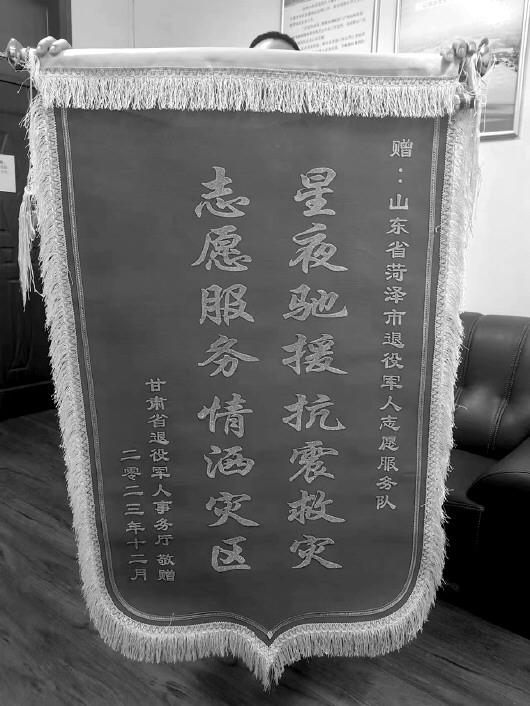 赠：山东省菏泽市退役军人志愿服务队
星夜驰援抗震救灾
志愿服务情洒灾区
甘肃省退役军人事务厅 敬赠
二零二三年十二月